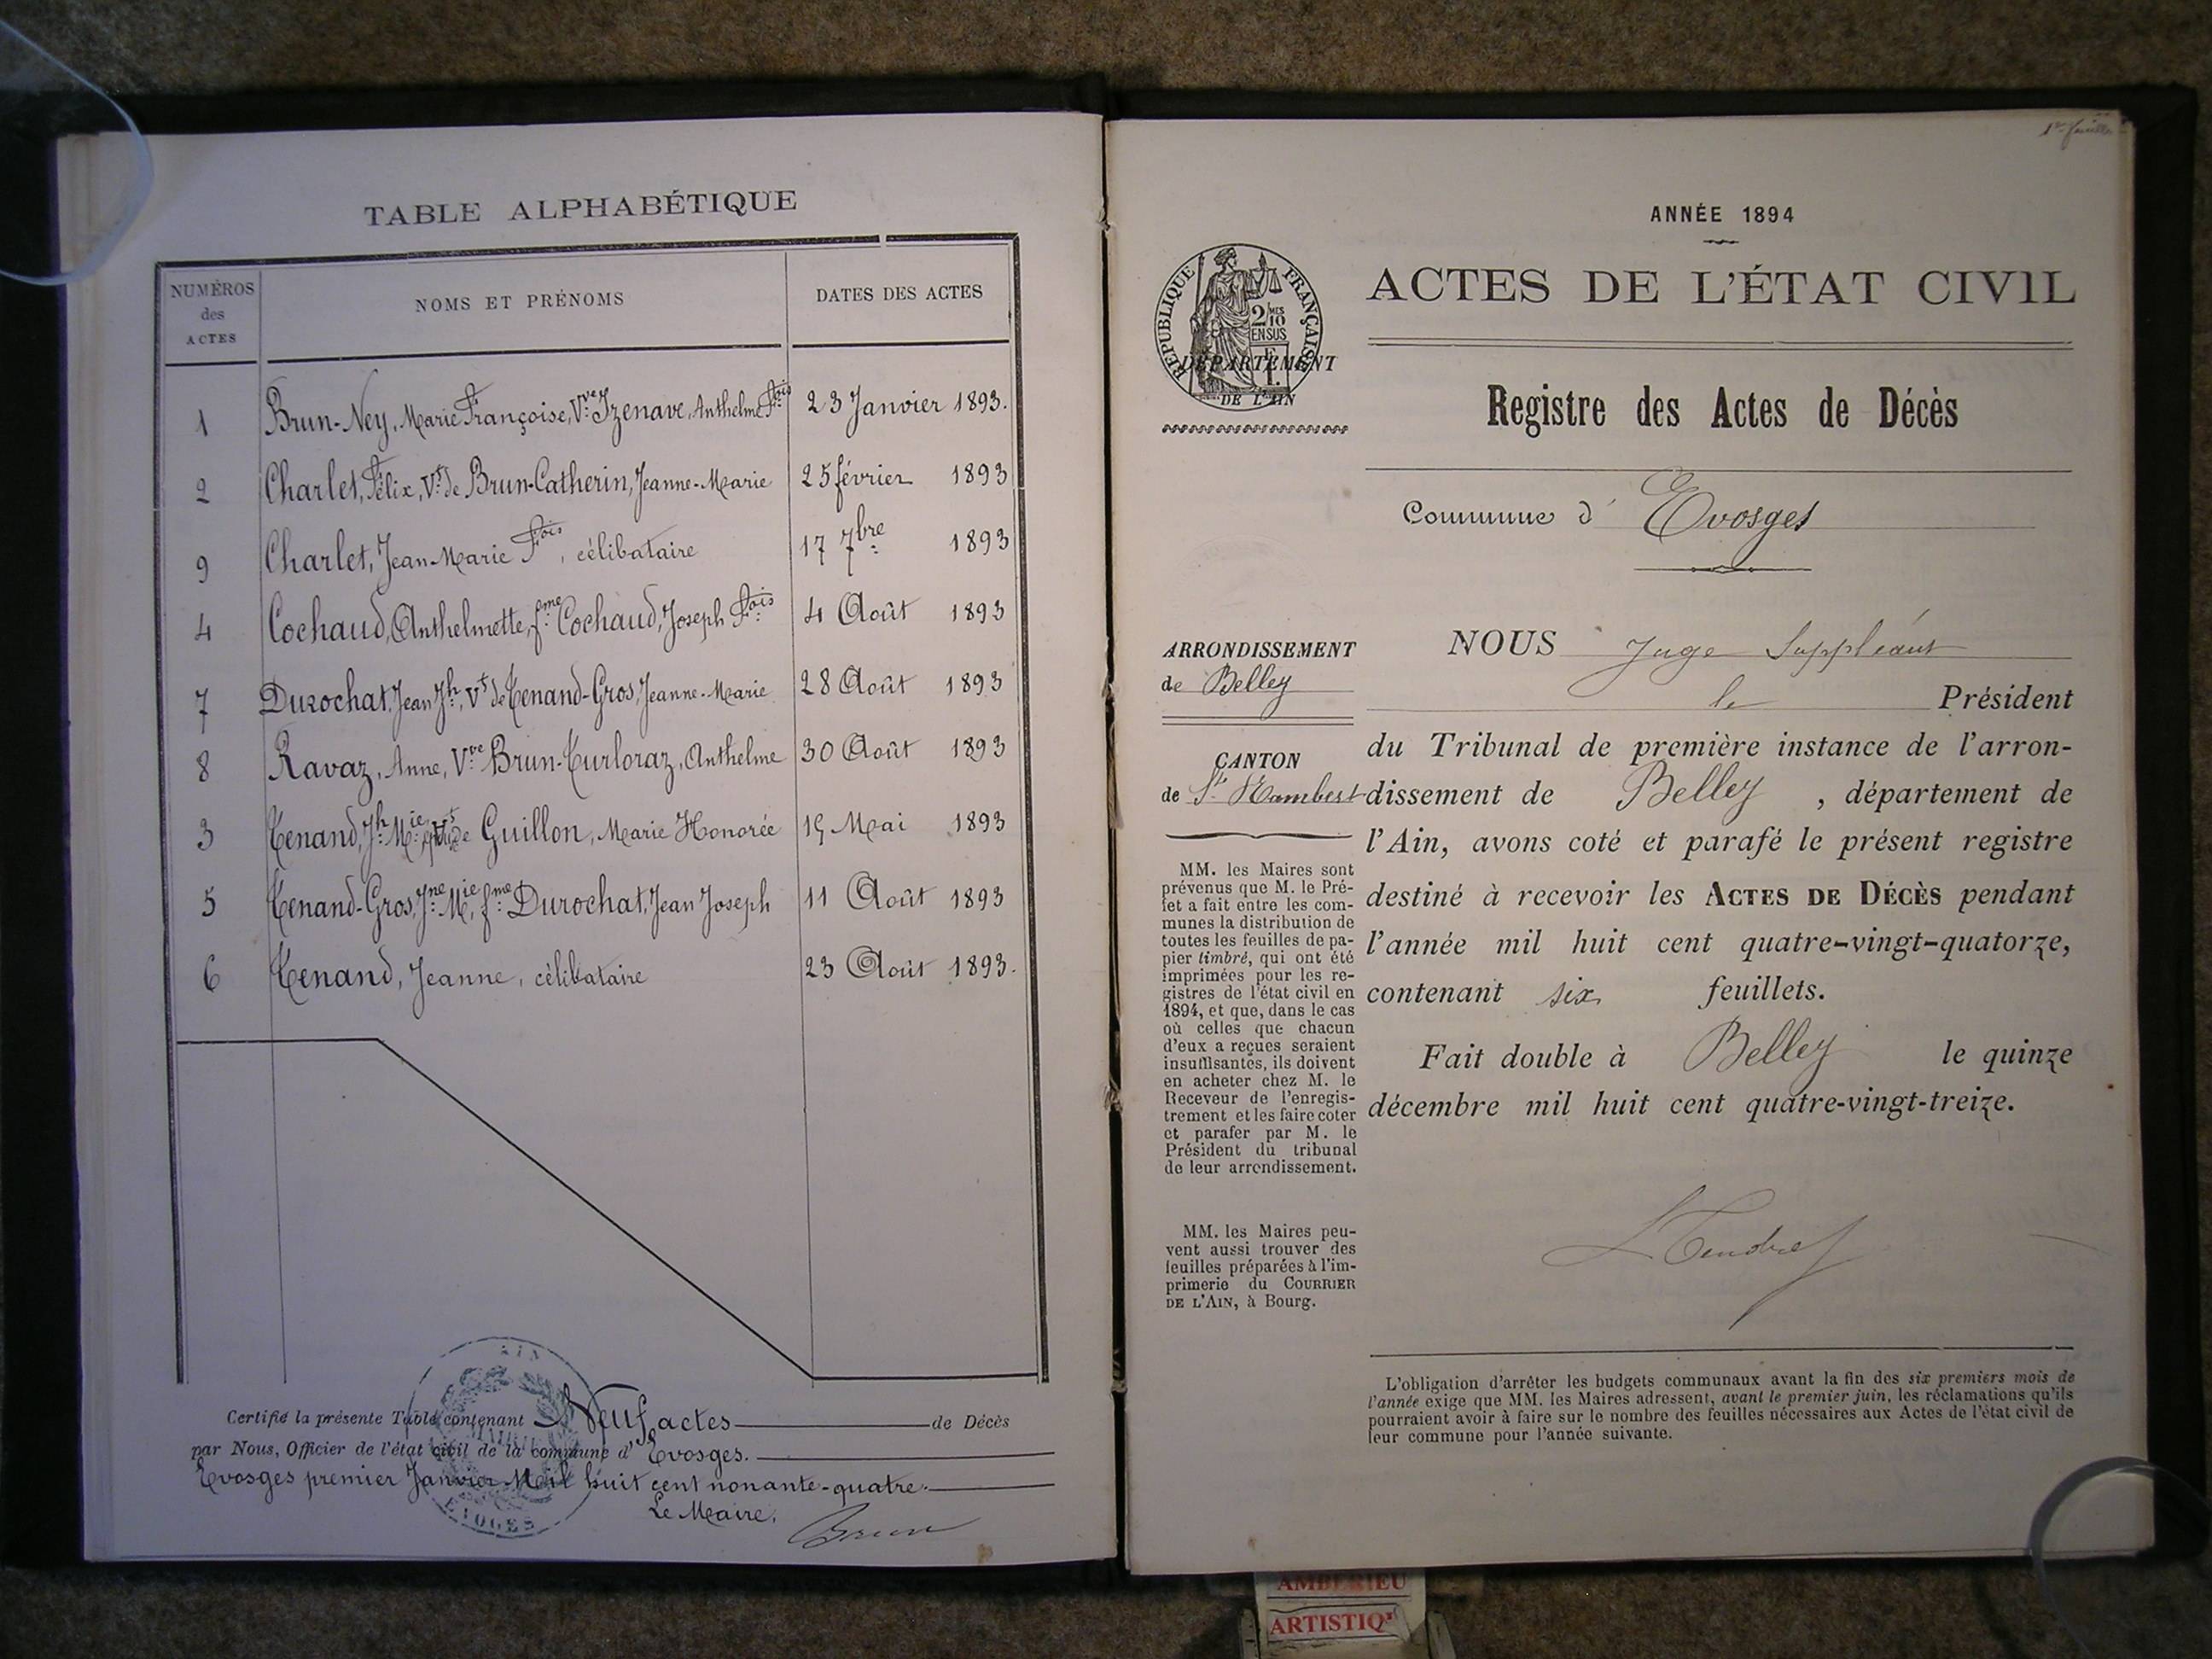 TABLE ALPHABÉTIQUE
NUMÉROS des ACTES
NOMS ET PRÉNOMS
DATES DES ACTES
1 Brun-Ney, Marie Françoise, Vve Izenave, Anthelme Fois 23 Janvier 1893.
2 Charlet, Félix, Vf de Brun-Catherin, Jeanne-Marie 25 février 1893
9 Charlet, Jean Marie Fois, célibataire 17 7bre 1893
4 Cochaud, Anthelmette, fme Cochaud, Joseph Fois 4 Août 1893
7 Durochat, Jean Jh, Vf de Tenand-Gros, Jeanne-Marie 28 Août 1893
8 Ravaz, Anne, Vve Brun-Turloraz, Anthelme 30 Août 1893
3 Tenand, Jh Mie Guillon, Marie Honorée 19 Mai 1893
5 Tenand-Gros, Jne Mie, fme Durochat, Jean Joseph 11 Août 1893
6 Tenand, Jeanne, célibataire 23 Août 1893.
Certifié la présente Table contenant Neuf actes de Décès
par Nous, Officier de l'état civil de la commune d' Evosges.
Evosges premier Janvier Mil huit cent nonante-quatre.
Le Maire,
Brun
AIN
ANNÉE 1894
RÉPUBLIQUE FRANÇAISE
2 MES
10
EN SUS
DÉPARTEMENT
DE L'AIN
ACTES DE L'ÉTAT CIVIL
Registre des Actes de Décès
Commune d' Evosges
ARRONDISSEMENT
de Belley
CANTON
de St Rambert
MM. les Maires sont
prévenus que M. le Pré-
fet a fait entre les com-
munes la distribution de
toutes les feuilles de pa-
pier timbré, qui ont été
imprimées pour les re-
gistres de l'état civil en
1894, et que, dans le cas
où celles que chacun
d'eux a reçues seraient
insuffisantes, ils doivent
en acheter chez M. le
Receveur de l'enregis-
trement et les faire coter
et parafer par M. le
Président du tribunal
de leur arrondissement.
MM. les Maires peu-
vent aussi trouver des
feuilles préparées à l'im-
primerie du COURRIER
DE L'AIN, à Bourg.
NOUS Juge Suppléant
le Président
du Tribunal de première instance de l'arron-
dissement de Belley , département de
l'Ain, avons coté et parafé le présent registre
destiné à recevoir les ACTES DE DÉCÈS pendant
l'année mil huit cent quatre-vingt-quatorze,
contenant six feuillets.
Fait double à Belley le quinze
décembre mil huit cent quatre-vingt-treize.
L'obligation d'arrêter les budgets communaux avant la fin des six premiers mois de
l'année exige que MM. les Maires adressent, avant le premier juin, les réclamations qu'ils
pourraient avoir à faire sur le nombre des feuilles nécessaires aux Actes de l'état civil de
leur commune pour l'année suivante.
AMBERIEU
ARTISTIQ